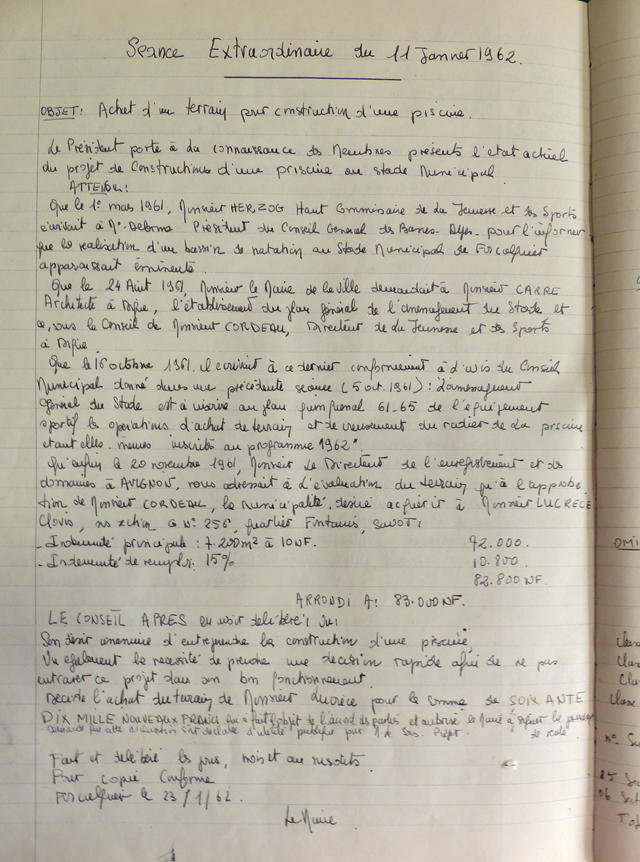 Séance Extraordinaire du 11 Janvier 1962.
OBJET: Achat d'un terrain pour construction d'une piscine.
Le Président porte à la connaissance des Membres présents l'état actuel
du projet de Constructions d'une piscine au stade Municipal
ATTENDU:
Que le 1er mars 1961, Monsieur HERZOG Haut Commissaire de la Jeunesse et des Sports
écrivait à Mr Delorme Président du Conseil General des Basses-Alpes pour l'informer
que la réalisation d'un bassin de natation au Stade Municipal de Forcalquier
apparaissait
Que le 24 Août 1961, Monsieur le Maire de la Ville demandait à Monsieur CARRE
Architecte à l'établissement du plan général de l'aménagement du Stade et
ce, sous le Conseil de Monsieur CORDEAU, Directeur de la Jeunesse et des Sports
à
Que le 16 octobre 1961, il écrivait à ce dernier conformément à l'avis du Conseil
Municipal donné dans une précédente séance (5 oct. 1961): L'aménagement
Général du Stade est à inscrire au plan 61.65 de l'équipement
sportif les opérations d'achat de terrain et de creusement du radier de la piscine
étant elles-mêmes inscrites au programme 1962".
Qu'enfin le 20 novembre 1961, Monsieur Le Directeur de l'enregistrement et des
domaines à AVIGNON, nous adressait l'évaluation du terrain qu'à l'approba
tion de Monsieur CORDEAU, la Municipalité désire acquérir à Monsieur LUCRECE
Clovis, section G N° 256, quartier Fontauris, SAVOIR:
- Indemnité principale: 7.200m² à 10NF. 72.000.
- Indemnité de remploi: 15% 10.800
82.800 NF.
ARRONDI A: 83.000NF.
LE CONSEIL APRES en avoir délibéré:
Son désir unanime d'entreprendre la construction d'une piscine,
Vu également la nécessité de prendre une décision rapide afin de ne pas
entraver ce projet dans son bon fonctionnement.
Décide l'achat du terrain de Monsieur Lucrèce pour la somme de SOIXANTE
DIX MILLE NOUVEAUX FRANCS qui a fait l'objet de l'accord des parties et autorise le Maire à signer
demande que cette acquisition soit déclarée d'utilité publique par M. le Sous. Préfet.
Fait et délibéré les jour, mois et an susdits
Pour copie Conforme
Forcalquier le 23/1/62.
Le Maire